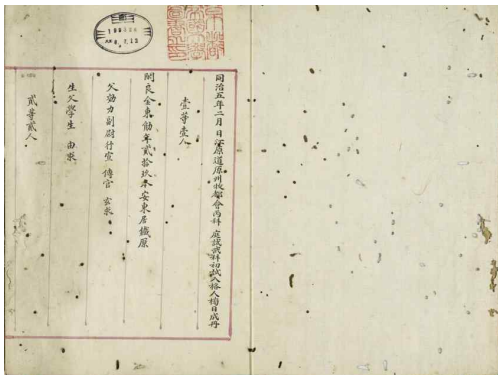 同治五年二月日江原道原州牧都會丙科 庭試武科初試入格人榜目成冊
壹等壹人
閑良金東勛年貳拾玖本安東居鐵原
父効力副尉行宣傳官 玄敎
生父學生 由敎
貳等貳人